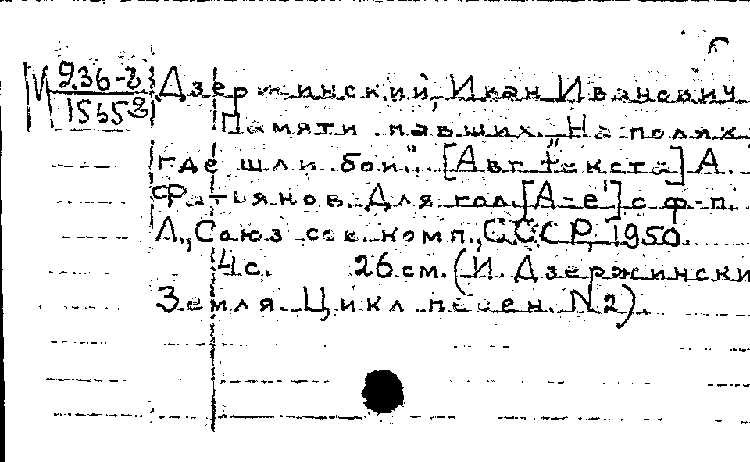 М 936-8 Дзержинский, Иван Иванович.
15658
Памяти павших. "На полях,
где шли бои". [Авт. текста] А.
Фатьянов. Для гол. [А-е'] с ф-п.
Л., Союз сов. комп., СССР, 1950.
4 с. 26 см. (И. Дзержински
Земля. Цикл песен. N 2).